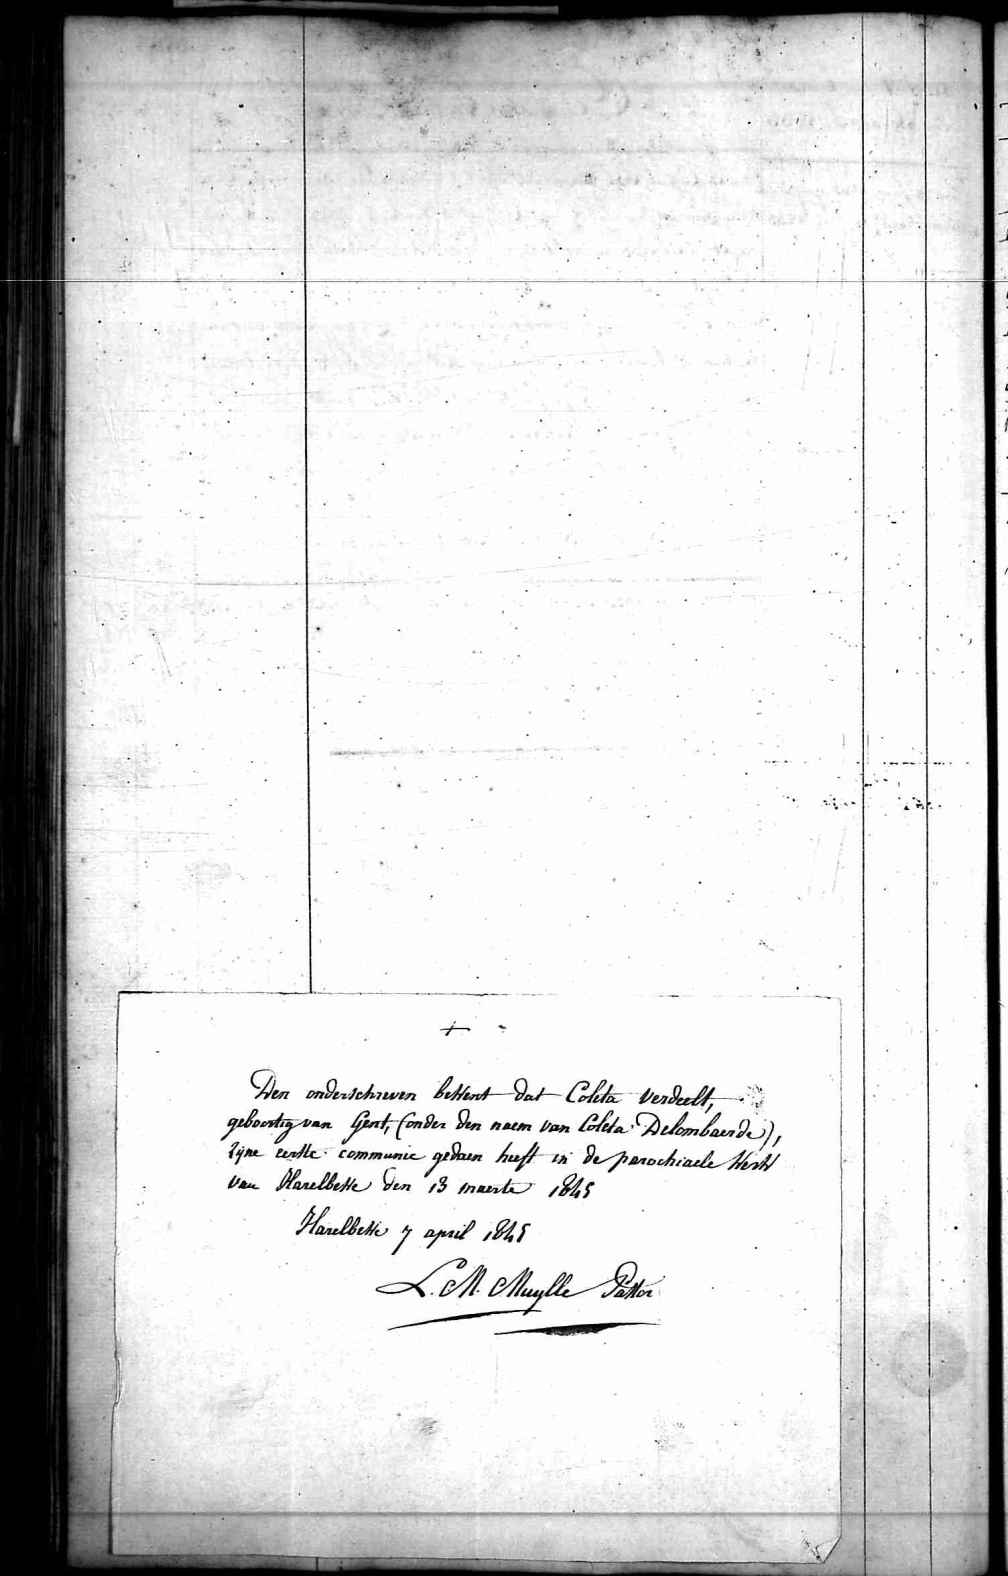 +
Den onderschreven bekent dat Coleta verdeelt,
geboortig van Gent, (onder den naem van Coleta Delombaerde),
zijne eerste communie gedaen heeft in de parochiaele kerk
van Harelbeke den 13 maerte 1845
Harelbeke 7 april 1845
L. M. Muylle Pastor